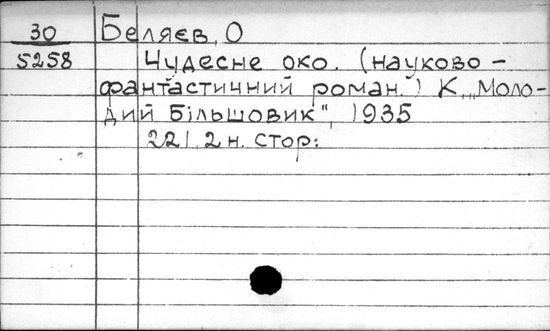 30 Беляєв, О
5258 Чудесне око. (науково-
фантастичний роман.) К. „Моло-
дий Більшовик", 1935
221, 2 н. стор.